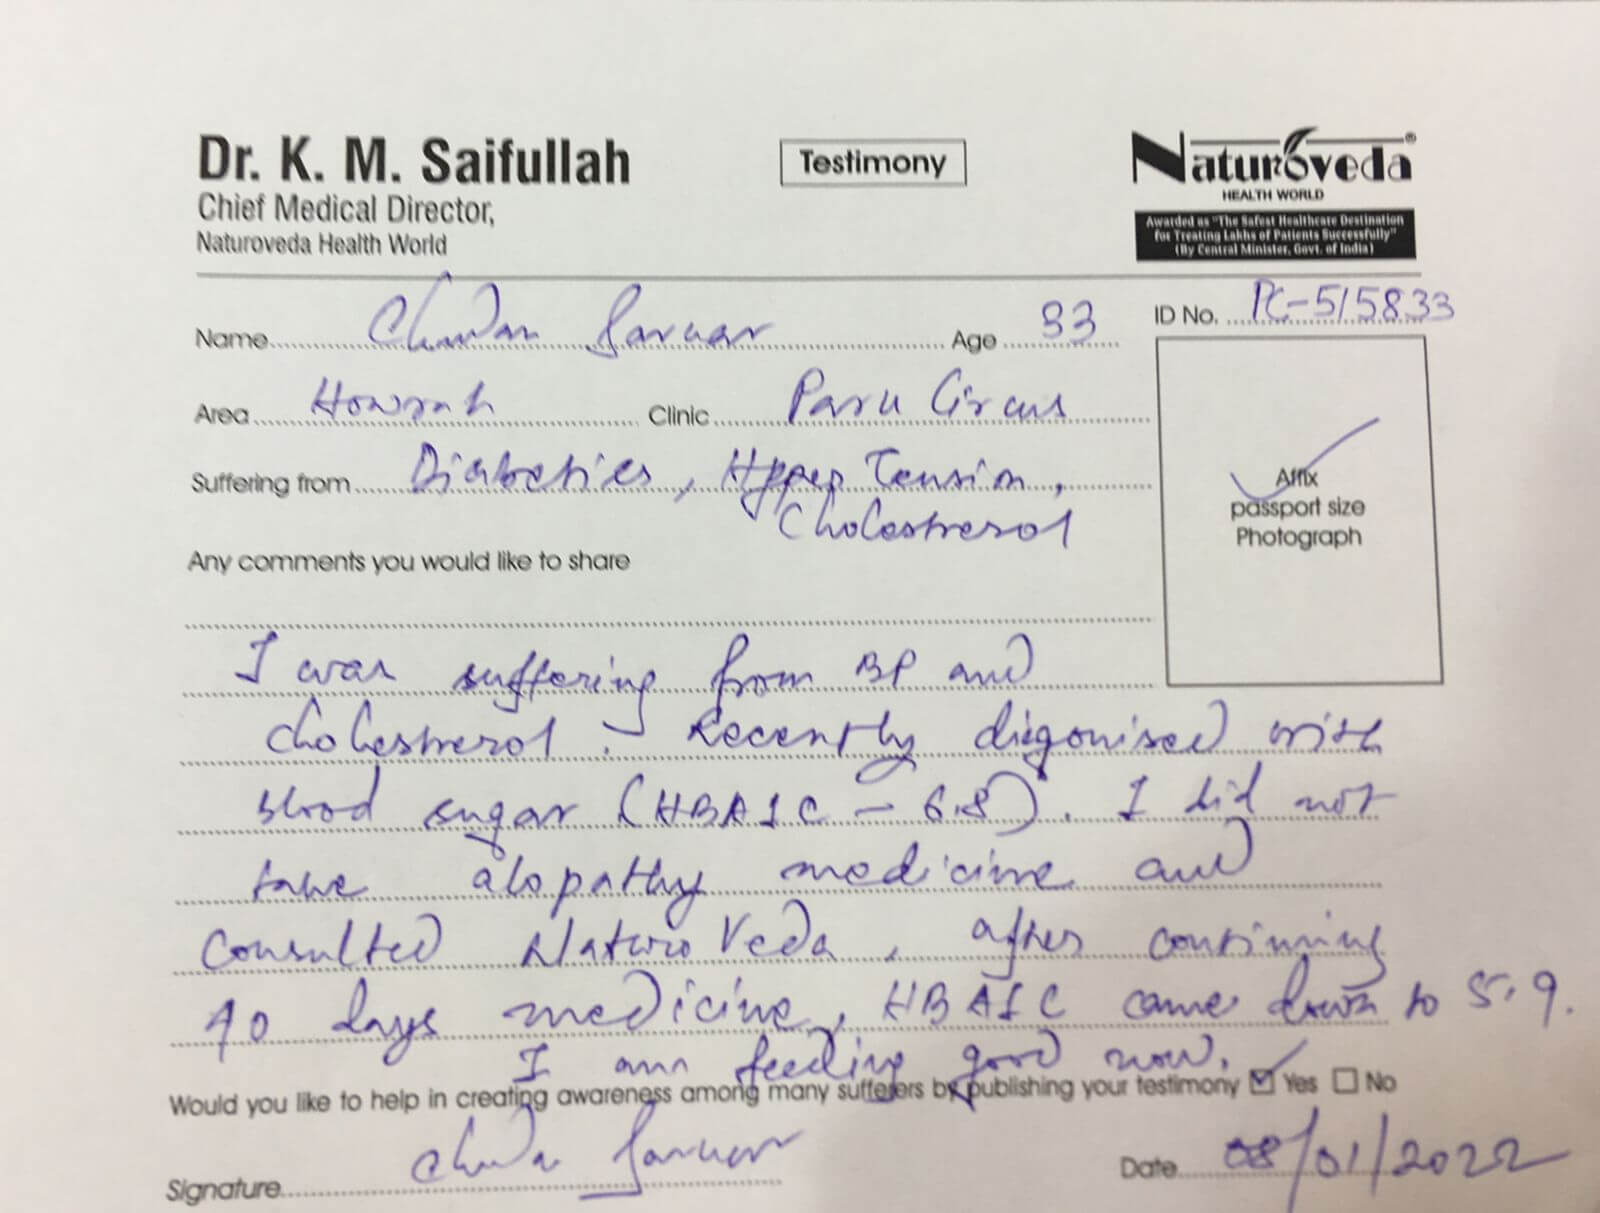 Dr. K. M. Saifullah
Chief Medical Director,
Naturoveda Health World
Testimony
Naturoveda®
HEALTH WORLD
Awarded as "The Safest Healthcare Destination
for Treating Lakhs of Patients Successfully"
(By Central Minister, Govt. of India)
ID No. PC-515833
Name Sarkar Age 33
Area Howrah Clinic Park Circus
Suffering from Diabeties, Hyper Tension,
Cholestrerol
Affix
passport size
Photograph
Any comments you would like to share
I was suffering from BP and
cholestrerol. Recently digonised with
blood sugar (HBA1C - 6.8). I did not
take alopathy medicine and
consulted NaturoVeda, after continuing
days medicine, HBA1C came down to 5.9.
I am feeling good now.
Would you like to help in creating awareness among many sufferers by publishing your testimony Yes No
Signature Sarkar
Date 08/01/2022